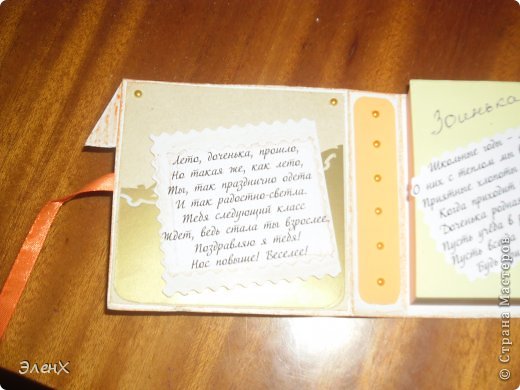 Лето, доченька, прошло,
Но такая же, как лето,
Ты, так празднично одета
И так радостно-светла.
Тебя следующий класс
Ждет, ведь стала ты взрослее,
Поздравляю я тебя!
Нос повыше! Веселее!
Зоинька
Школьные годы
О них с теплом мы
Приятные хлопоты
Когда приходит
Доченька родная
Пусть учеба в
Пусть всегда
ЭленХ
© Страна Мастеров